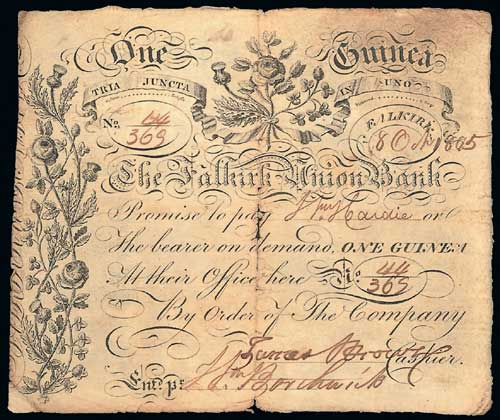 One Guinea
TRIA JUNCTA IN UNO
No. 44/369 FALKIRK
8 Oct 1805
The Falkirk Union Bank
Promise to pay Wm Hardie or
The bearer on demand, ONE GUINEA
At their Office here No. 44/369
By Order of The Company
James Cashier.
Entd. pr. Wm Borthwick